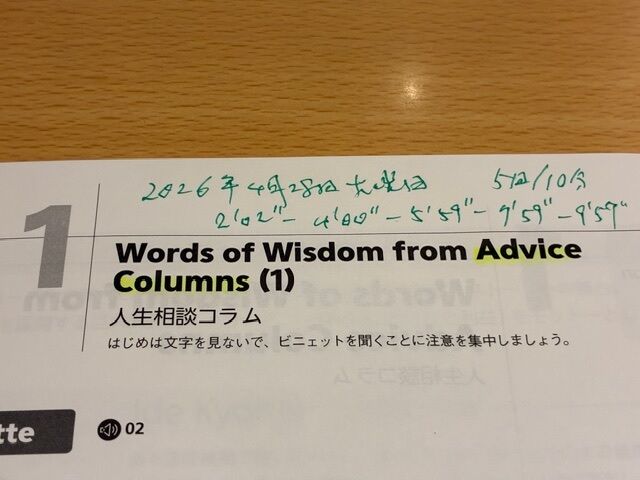 2026年4月28日火曜日 5回/10分
2'02"- 4'00" - 5'59" - 7'59" - 9'57"
1
Words of Wisdom from Advice
Columns (1)
人生相談コラム
はじめは文字を見ないで、ビニェットを聞くことに注意を集中しましょう。
tte
02